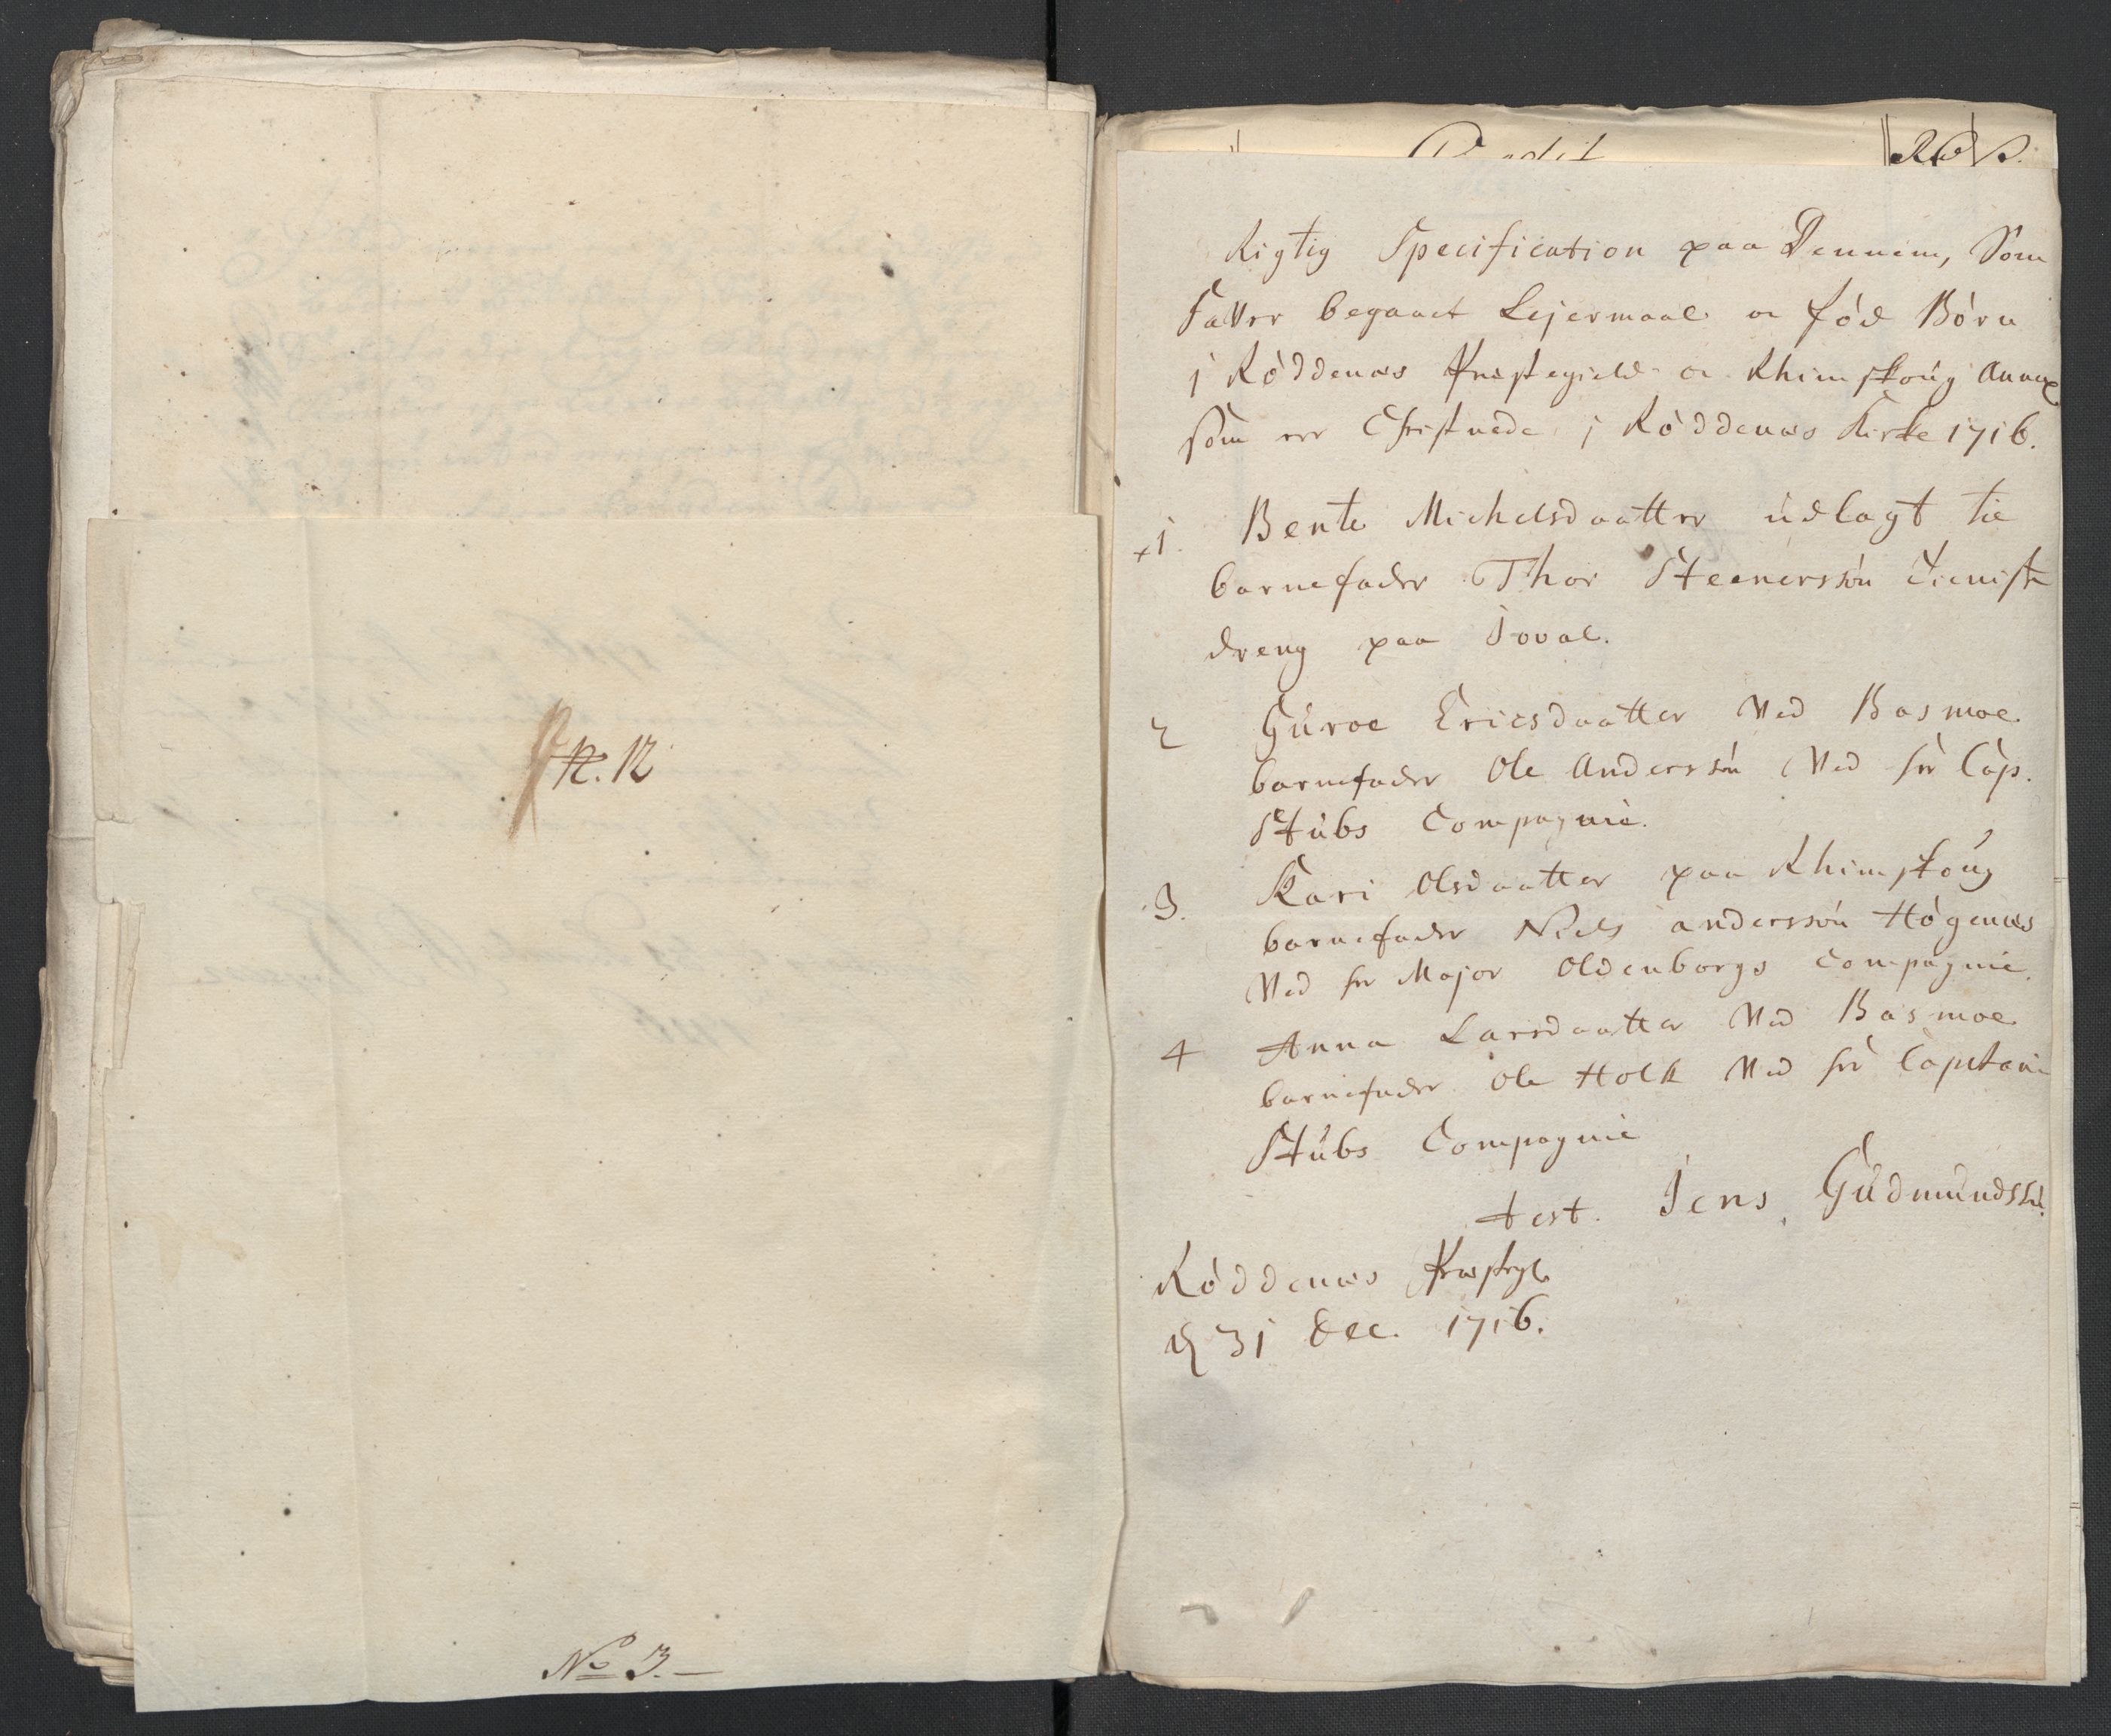 N. 12
No 3.
Rigtig Specification paa Dennem, Som
haver begaaet Lejermaal oc fød Børn
i Røddenæs Præstegield oc Rhimskoug Annex
som ere Christnede i Røddenæs Kirke 1716.
+1. Bente Michelsdaatter udlagt til
barnefader Thor Steenersøn Tieniste
dreng paa Joval.
2 Guroe Ericsdaatter Ved Basmoe
barnefader Ole Anderssøn Ved hr Cap.
Stubs Compagnie.
3. Kari Olsdaatter paa Rhimskoug
barnefader Niels anderssøn Høgenæs
Ved hr Major Oldenborgs Compagnie.
4 Anna Larsdaatter Ved Basmoe
barnefader Ole Holk Ved hr Capitain
Stubs Compagnie
test. Jens Gudmundssøn.
Røddenæs Præstegl.
d 31 Dec. 1716.